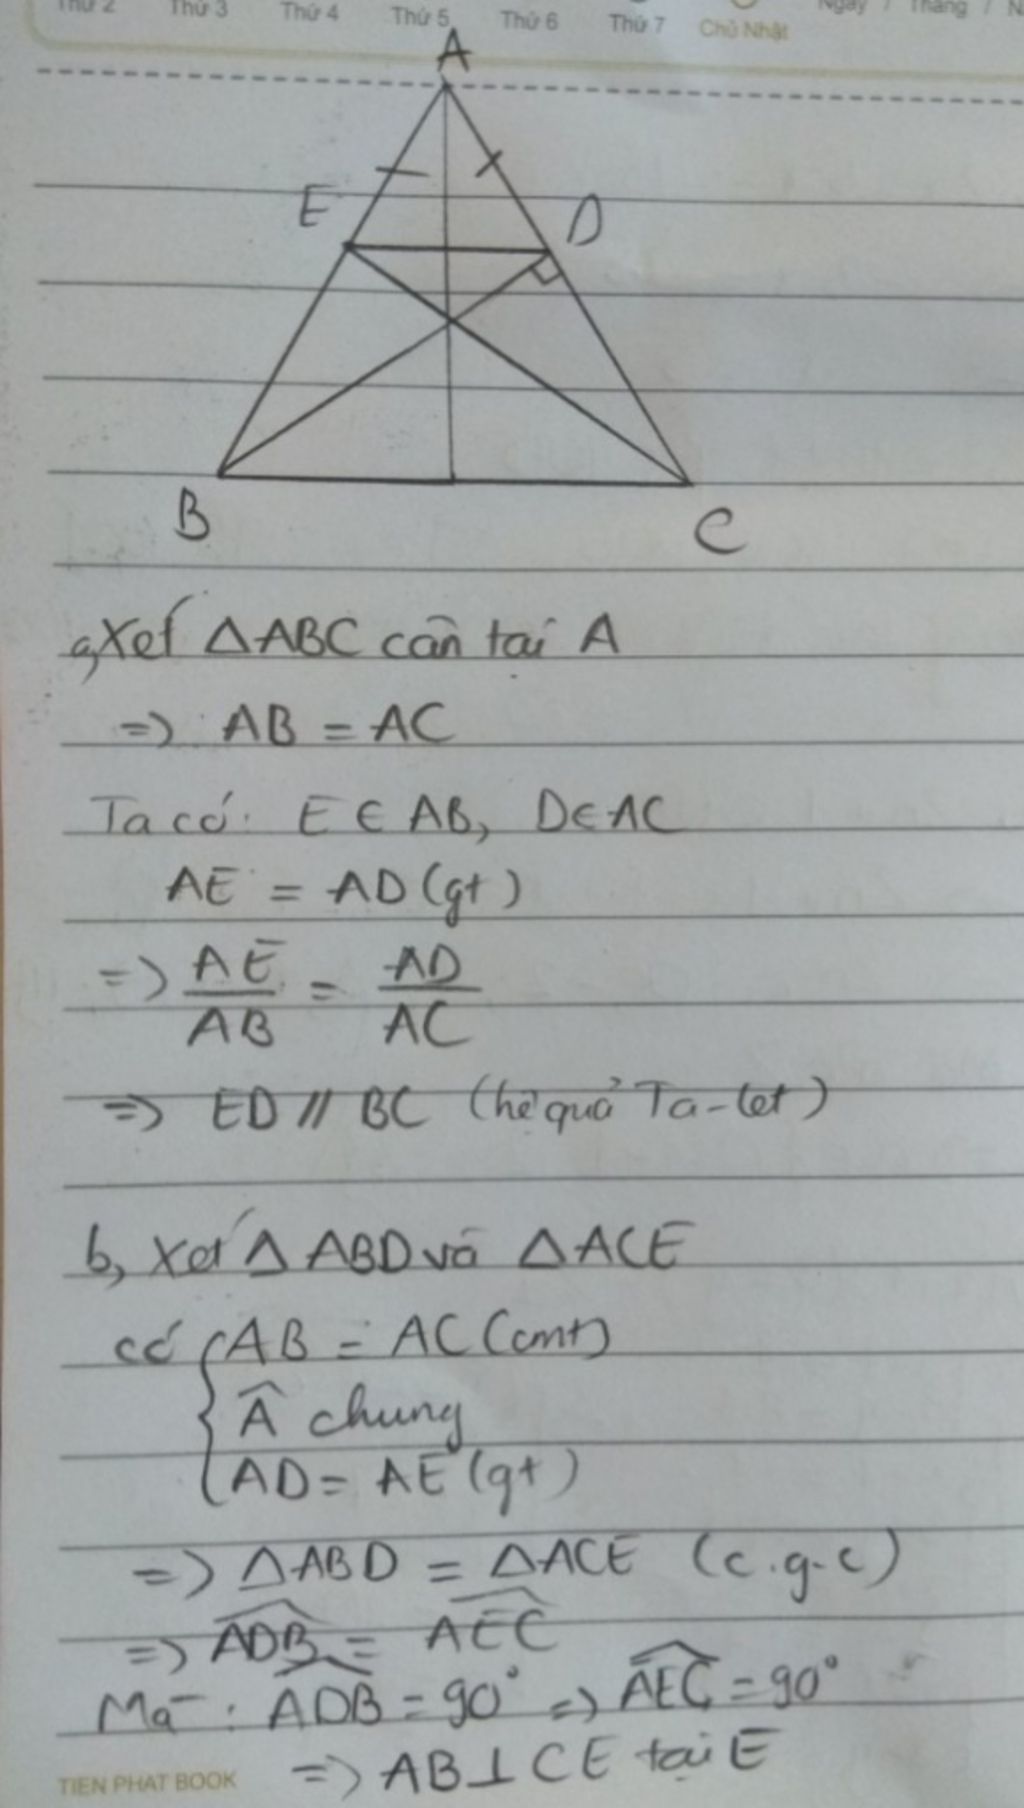 Thứ 2 Thứ 3 Thứ 4 Thứ 5 Thứ 6 Thứ 7 Chủ Nhật Ngày / Tháng / N
A
E
D
B
C
a, Xét △ABC cân tại A
=> AB = AC
Ta có: E ∈ AB, D ∈ AC
AE = AD (gt)
=> AE/AB = AD/AC
=> ED // BC (hệ quả Ta-let)
b, Xét △ ABD và △ACE
có { AB = AC (cmt)
Â chung
AD = AE (gt)
=> △ABD = △ACE (c.g.c)
=> \widehat{ADB} = \widehat{AEC}
Mà: \widehat{ADB} = 90° => \widehat{AEC} = 90°
=> AB ⊥ CE tại E
TIEN PHAT BOOK